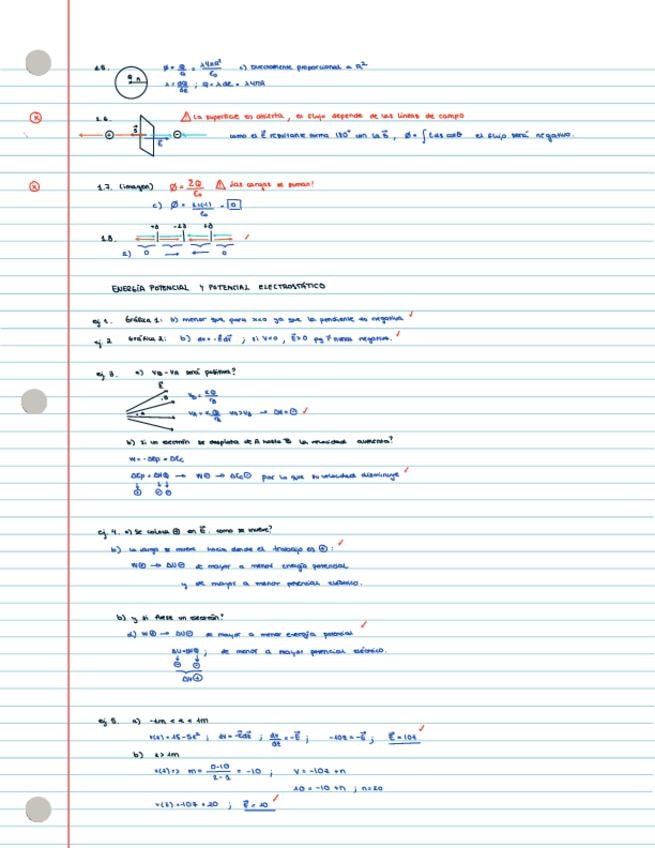 1.5. Ø = Q/ε₀ = λ4πR²/ε₀ c) Directamente proporcional a R²
⚠ La superficie es abierta, el flujo depende de las líneas de campo
1.6. como el E⃗ resultante forma 180° con la S⃗, Ø = ∫Eds cosθ el flujo será negativo.
1.7. (imagen) Ø = ΣQ/ε₀ ⚠ ¡Las cargas se suman!
c) Ø = = 0
1.8.
a) 0 → ← 0
ENERGÍA POTENCIAL Y POTENCIAL ELECTROSTÁTICO
ej 1. Gráfica 1: b) menor que para x<0 ya que la pendiente es negativa ✓
ej. 2 Gráfica 2: b) dv = -E⃗dr⃗ ; si V<0, E⃗>0 negativa. ✓
ej 3. a) VB - VA será positiva?
E⃗
VB = KQ/
VA = KQ/ VA>VB → ΔV = ⊖ ✓
b) Si un electrón se desplaza de A hasta B la velocidad aumenta?
W = -ΔEp = ΔEc
ΔEp = ΔVQ → W⊖ → ΔEc⊖ por lo que su velocidad disminuye ✓
⊕ ⊖⊖
ej. 4. a) Se coloca ⊕ en E⃗. como se mueve?
b) La carga se mueve hacia donde el trabajo es ⊕: ✓
W⊕ → ΔU⊖ de mayor a menor energía potencial
y de mayor a menor potencial eléctrico.
b) y si fuese un electrón?
d) W⊕ → ΔU⊖ de mayor a menor energía potencial ✓
ΔU=ΔVQ ; de menor a mayor potencial eléctrico.
⊖ ⊖
ΔV⊕
ej 5. a) -1m < x < 1m
v(x) = 15-5x² ; dv = -E⃗dx⃗ ; dv/dx = -E⃗ ; -10x = -E⃗ ; E⃗ = 10x ✓
b) x > 1m
v(x) => m = 0-10/2-1 = -10 ; v = -10x + n
10 = -10 + n ; n = 20
v(x) = -10x + 20 ; E⃗ = 10 ✓